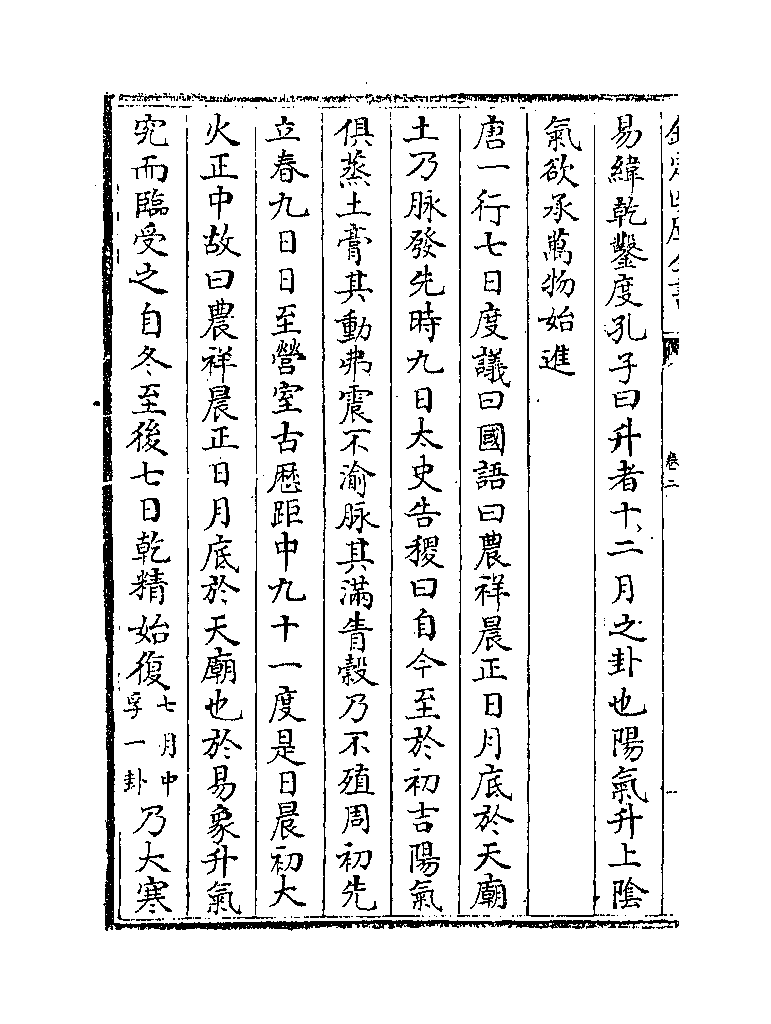 欽定四庫全書
卷二
易緯乾鑿度孔子曰升者十二月之卦也陽氣升上陰
氣欲承萬物始進
唐一行七日度議曰國語曰農祥晨正日月底於天廟
土乃脉發先時九日太史告稷曰自今至於初吉陽氣
俱蒸土膏其動弗震不渝脉其滿眚穀乃不殖周初先
立春九日日至營室古歷距中九十一度是日晨初大
火正中故曰農祥晨正日月底於天廟也於易象升氣
究而臨受之自冬至後七日乾精始復七月中孚一卦乃大寒